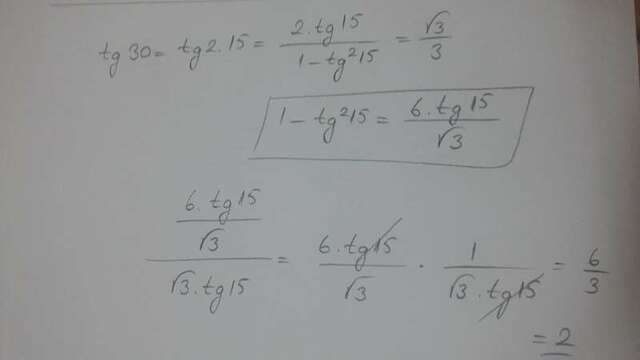 tg 30 = tg 2.15 = (2.tg 15)/(1 - tg²15) = √3/3
1 - tg²15 = (6.tg 15)/√3
((6.tg 15)/√3)/(√3.tg 15) = (6.tg 15)/√3 . 1/(√3.tg 15) = 6/3
= 2